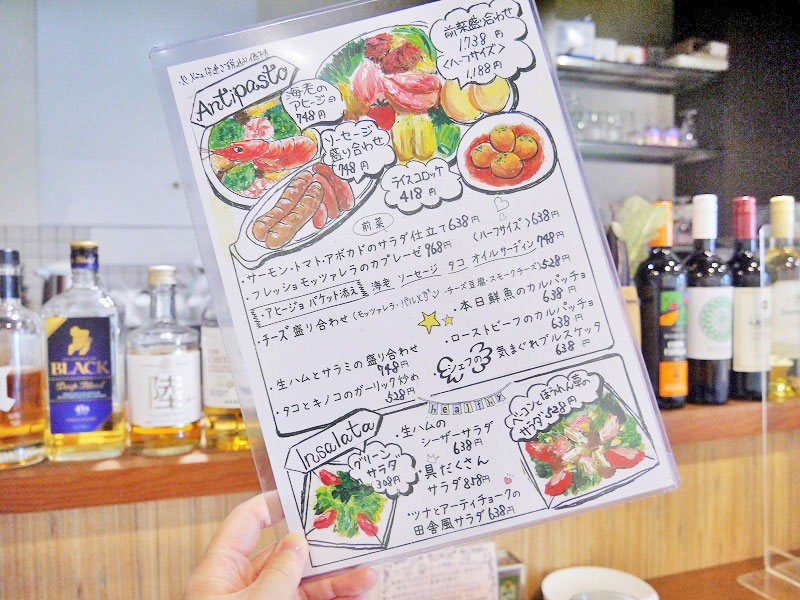 Antipasto
海老の
アヒージョ
748円
前菜盛り合わせ
1,738円
〈ハーフサイズ〉
1,188円
ソーセージ
盛り合わせ
748円
ライスコロッケ
418円
前菜
・サーモン・トマト・アボカドのサラダ仕立て638円
・フレッシュモッツァレラのカプレーゼ968円 〈ハーフサイズ〉638円
・アヒージョ バケット添え 海老 ソーセージ タコ オイルサーディン748円
・チーズ盛り合わせ(モッツァレラ・パルメザン・チーズ豆腐・スモークチーズ)528円
・本日鮮魚のカルパッチョ
638円
・ローストビーフのカルパッチョ
638円
・シェフの気まぐれブルスケッタ
638円
・生ハムとサラミの盛り合わせ
748円
・タコとキノコのガーリック炒め
528円
healthy
Insalata
グリーン
サラダ
308円
・生ハムの
シーザーサラダ
638円
・具だくさん
サラダ858円
・ツナとアーティチョークの
田舎風サラダ638円
ベーコンとほうれん草の
サラダ528円
BLACK
Deep Blend